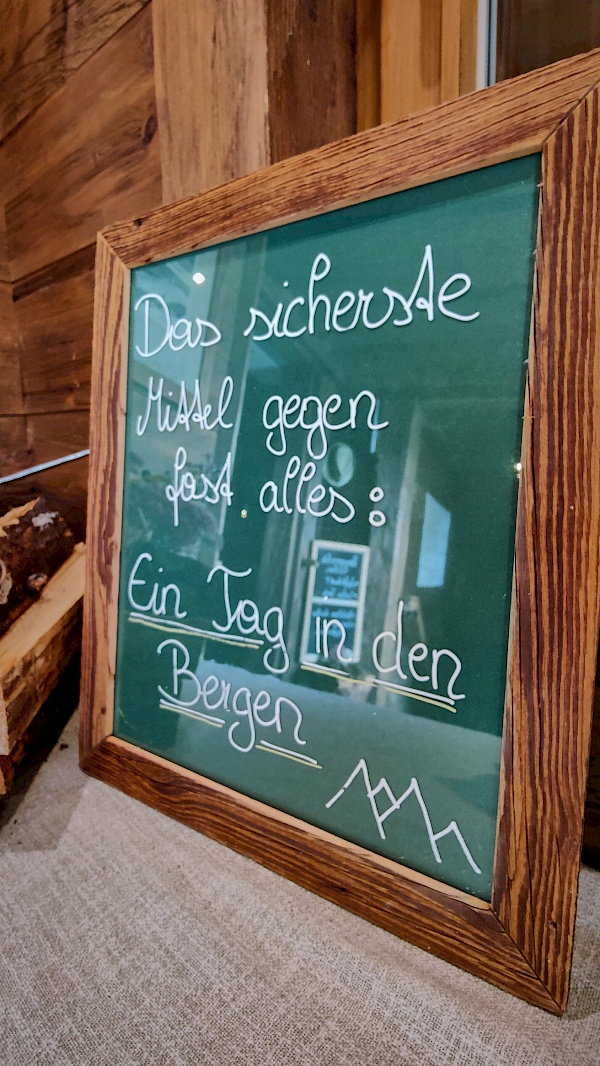 Das sicherste
Mittel gegen
fast alles:
Ein Tag in den
Bergen